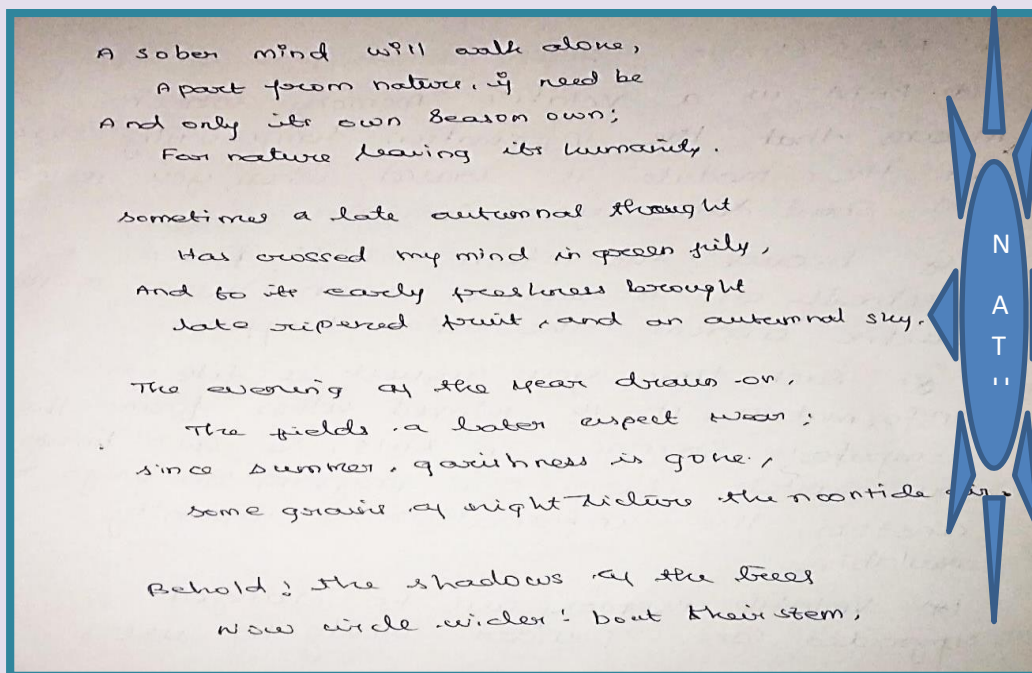 A sober mind will walk alone,
Apart from nature, if need be
And only its own season own;
For nature leaving its humanity.
sometimes a late autumnal thought
Has crossed my mind in green july,
And to its early freshness brought
late ripened fruit, and an autumnal sky.
The evening of the year draws on,
The fields a later aspect wear;
since summer, garishness is gone,
some grains of night tincture the noontide air.
Behold; the shadows of the trees
Now circle wider 'bout their stem,
N
A
T